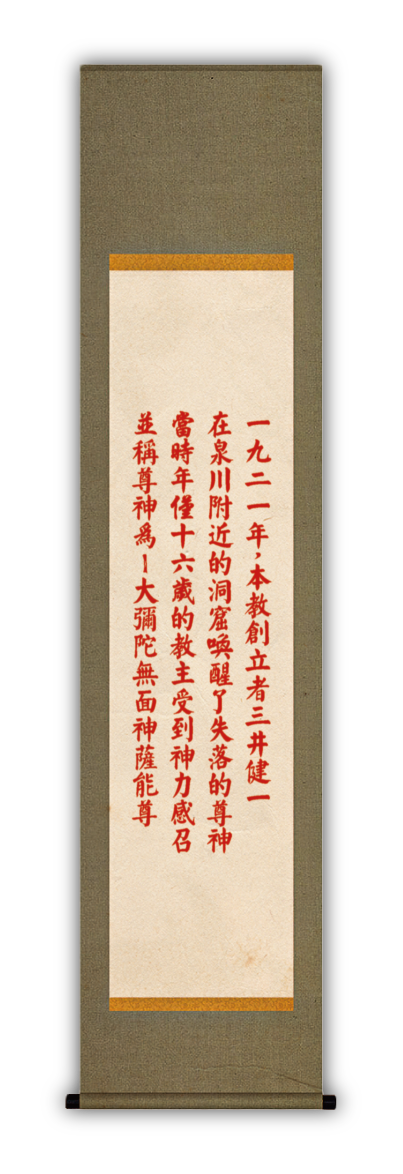 一九二一年，本教創立者三井健一
在泉川附近的洞窟喚醒了失落的尊神
當時年僅十六歲的教主受到神力感召
並稱尊神為—大彌陀無面神薩能尊